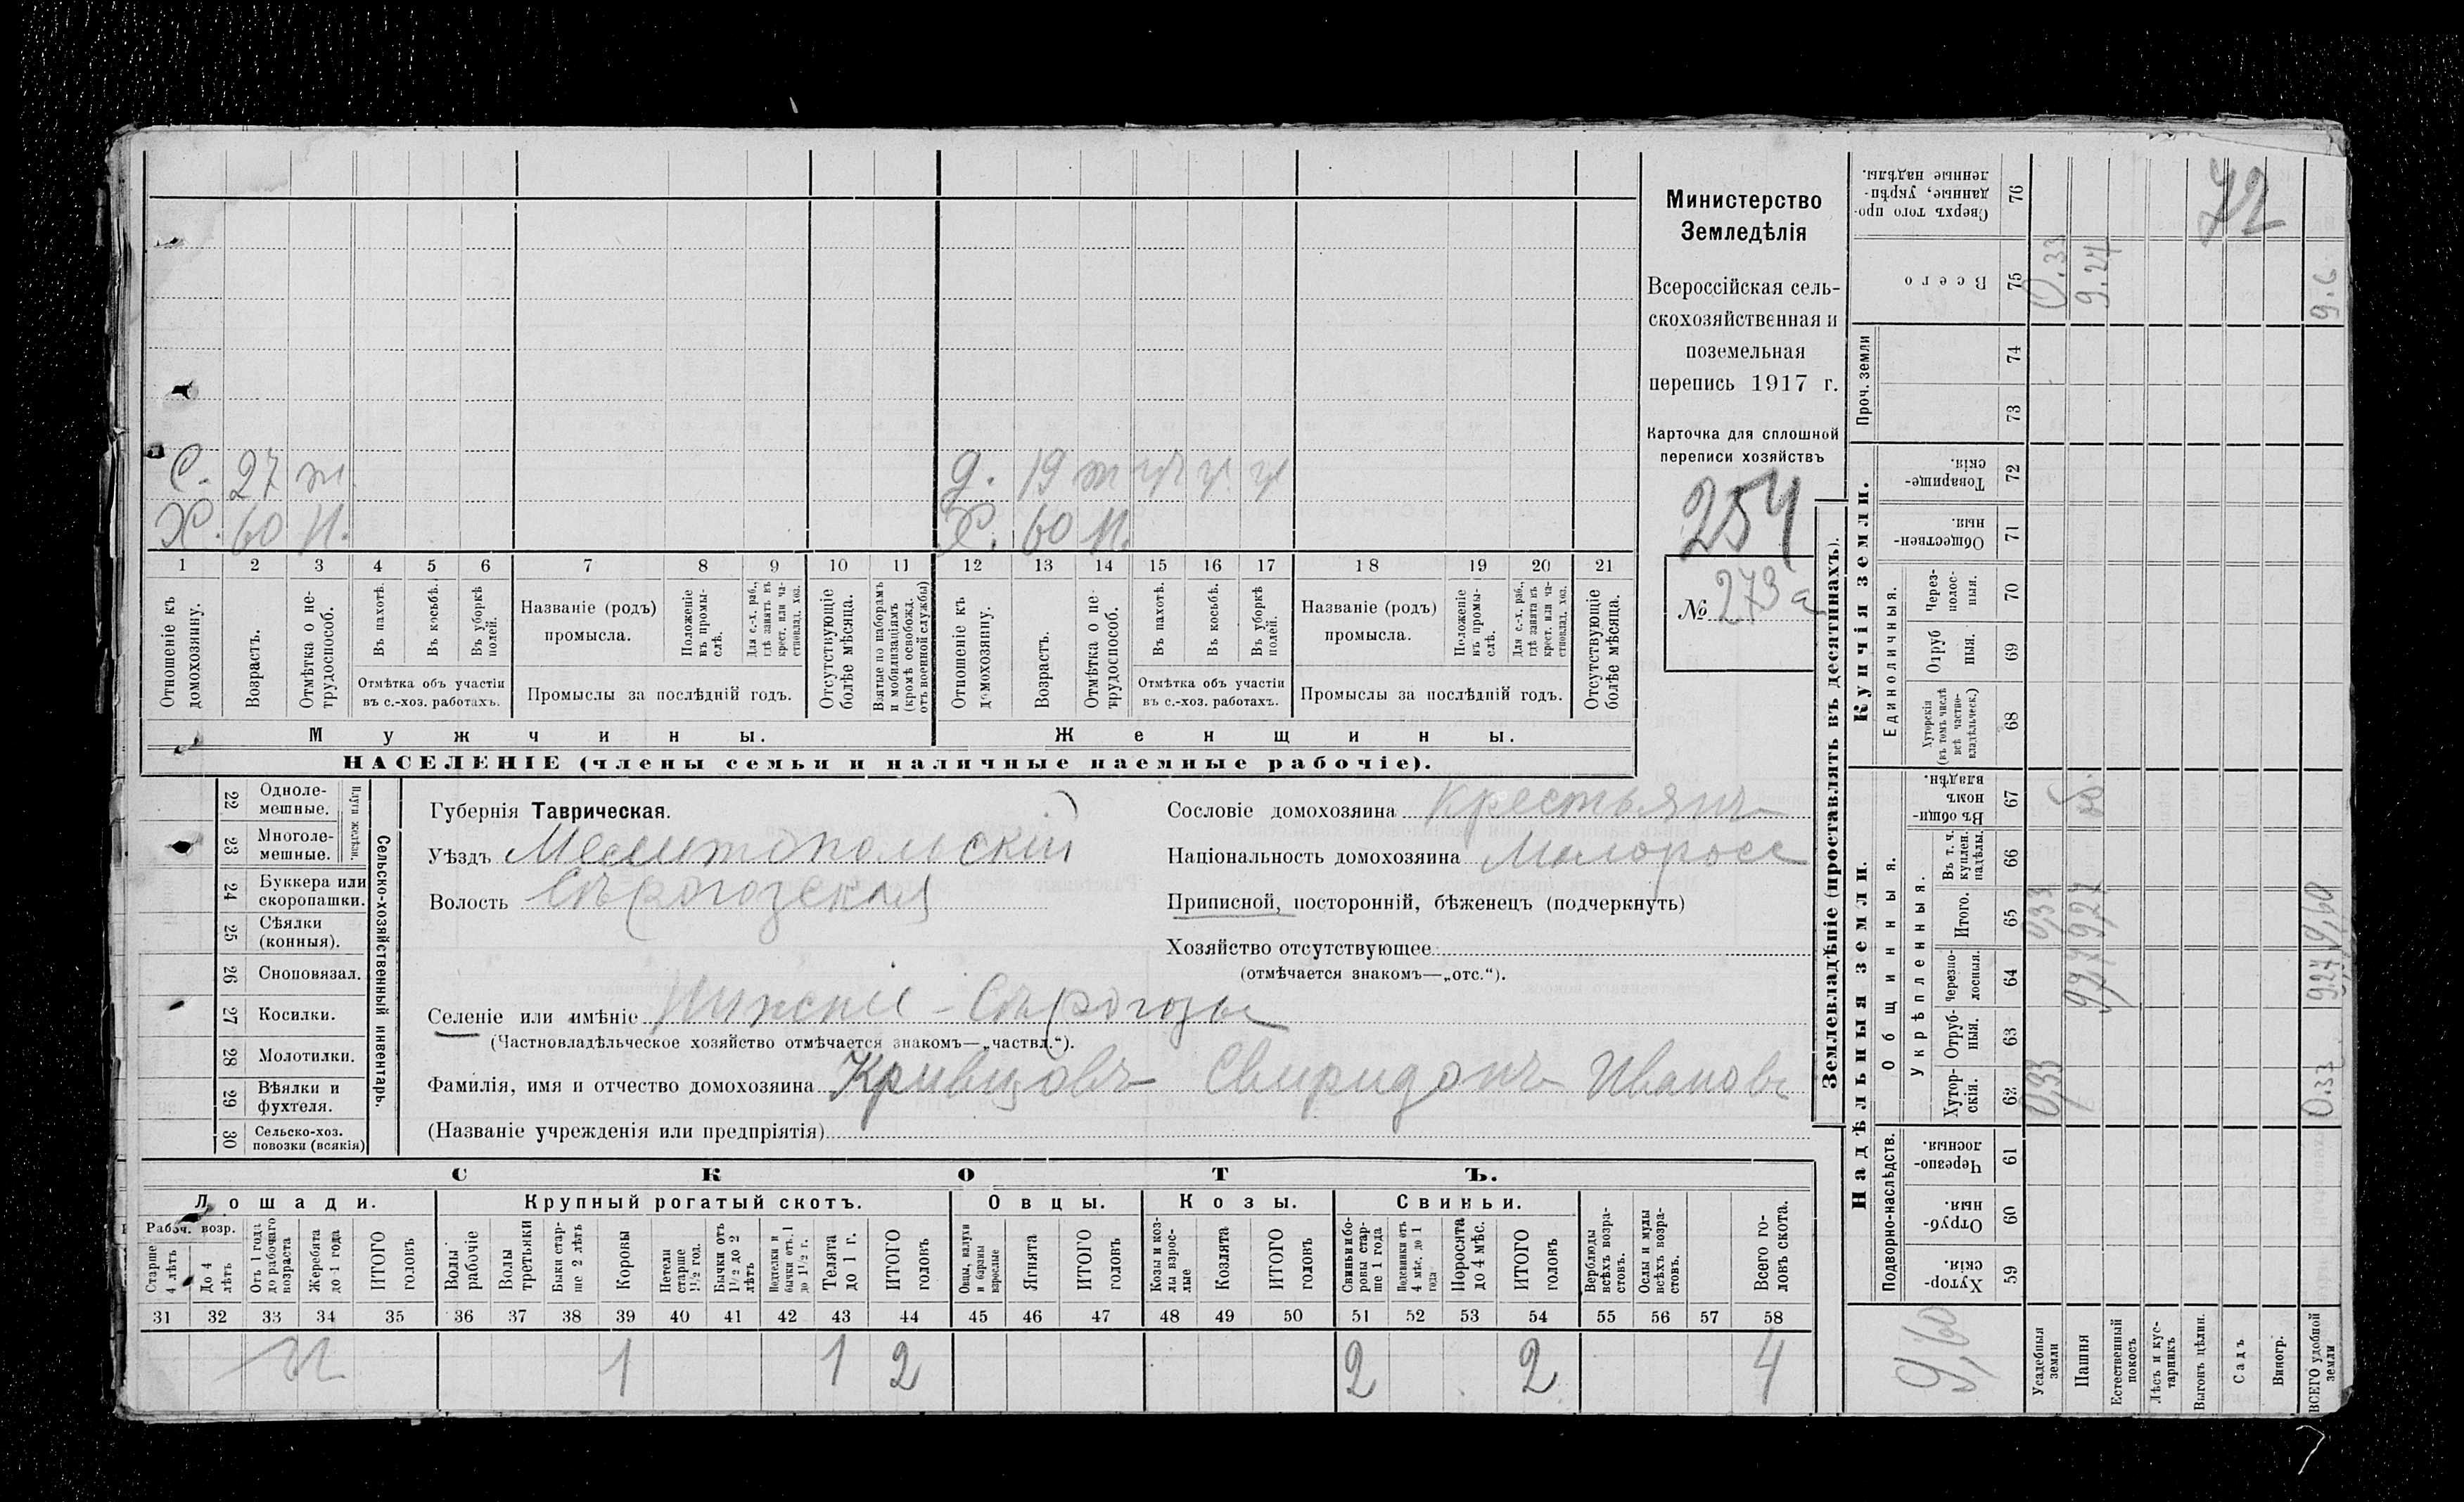 Министерство
Земледѣлія
Всероссійская сель-
скохозяйственная и
поземельная
перепись 1917 г.
Карточка для сплошной
переписи хозяйствъ
254
№ 273 а
С. 27 т.
Х. 60 н.
д. 19 т ч ч ч
Х. 60 н.
1 2 3 4 5 6 7 8 9 10 11 12 13 14 15 16 17 18 19 20 21
Отношеніе къ домохозяину.
Возрастъ.
Отмѣтка о не-трудоспособ.
Въ пахотѣ.
Въ косьбѣ.
Въ уборкѣ полей.
Отмѣтка объ участіи
въ с.-хоз. работахъ.
Названіе (родъ)
промысла.
Положеніе въ промы-слѣ.
Для с.-х. раб., гдѣ занятъ въ крест. или ча-стновлад. хоз.
Промыслы за послѣдній годъ.
Отсутствующіе болѣе мѣсяца.
Взятые по наборамъ и мобилизаціямъ (кромѣ освобожд. отъ военной службы)
Отношеніе къ домохозяину.
Возрастъ.
Отмѣтка о не-трудоспособ.
Въ пахотѣ.
Въ косьбѣ.
Въ уборкѣ полей.
Отмѣтка объ участіи
въ с.-хоз. работахъ.
Названіе (родъ)
промысла.
Положеніе въ промы-слѣ.
Для с.-х. раб., гдѣ занята въ крест. или ча-стновлад. хоз.
Промыслы за послѣдній годъ.
Отсутствующіе болѣе мѣсяца.
Мужчины.
Женщины.
НАСЕЛЕНІЕ (члены семьи и наличные наемные рабочіе).
Сельско-хозяйственный инвентарь.
Плуги желѣзн.
22 Одноле-мешные.
23 Многоле-мешные.
24 Буккера или скоропашки.
25 Сѣялки (конныя).
26 Сноповязал.
27 Косилки.
28 Молотилки.
29 Вѣялки и фухтеля.
30 Сельско-хоз. повозки (всякія)
Губернія Таврическая.
Уѣздъ Мелитопольскій
Волость Сѣрогозская
Селеніе или имѣніе Нижніе-Сѣрогозы
(Частновладѣльческое хозяйство отмѣчается знакомъ—„частвл.“).
Фамилія, имя и отчество домохозяина Кривцовъ Свиридонъ Иванов
(Названіе учрежденія или предпріятія)
Сословіе домохозяина крестьянъ
Національность домохозяина Малоросс
Приписной, посторонній, бѣженецъ (подчеркнуть)
Хозяйство отсутствующее
(отмѣчается знакомъ—„отс.“).
СКОТЪ.
Лошади.
Крупный рогатый скотъ.
Овцы.
Козы.
Свиньи.
Рабоч. возр.
Старше 4 лѣтъ
До 4 лѣтъ
Отъ 1 года до рабочаго возраста
Жеребята до 1 года
ИТОГО головъ
Волы рабочіе
Волы третьяки
Быки стар-ше 2 лѣтъ
Коровы
Нетели старше 1½ год.
Бычки отъ 1½ до 2 лѣтъ
Подтелки и бычки отъ 1 до 1½ г.
Телята до 1 г.
ИТОГО головъ
Овцы, валухи и бараны взрослые
Ягнята
ИТОГО головъ
Козы и коз-лы взрос-лые
Козлята
ИТОГО головъ
Свиньи и бо-ровы стар-ше 1 года
Подсвинки отъ 4 мѣс. до 1 года
Поросята до 4 мѣс.
ИТОГО головъ
Верблюды всѣхъ возра-стовъ.
Ослы и мулы всѣхъ возра-стовъ.
Всего го-ловъ скота.
31 32 33 34 35 36 37 38 39 40 41 42 43 44 45 46 47 48 49 50 51 52 53 54 55 56 57 58
1 1 2 2 2 4
Землевладѣніе (проставлять въ десятинахъ).
Надѣльныя земли.
Купчія земли.
Подворно-наслѣдств.
Общинныя.
Укрѣпленныя.
Единоличныя.
Проч. земли
59 Хутор-скія.
60 Отруб-ныя.
61 Черезпо-лосныя.
62 Хутор-скія.
63 Отруб-ныя.
64 Черезпо-лосныя.
65 Итого.
66 Въ т. ч. куплен. надѣлы.
67 Въ общи-номъ владѣн.
68 Хуторскія (въ томъ числѣ всѣ частно-владѣльческ.)
69 Отруб ныя.
70 Через-полос-ныя.
71 Обществен-ныя.
72 Товарище-скія.
73
74
75 Всего
76 Сверхъ того про-данные, укрѣп-ленные надѣлы.
Усадебныя земли 0,33 0,33 0.33
Пашня 9,27 9,27 9.24
Естественный покосъ
Лѣсъ и кус-тарникъ
Выгонъ цѣлин.
Садъ
Виногр.
ВСЕГО удобной земли 0.33 9.27 9,60 9.6
9,60
72
7